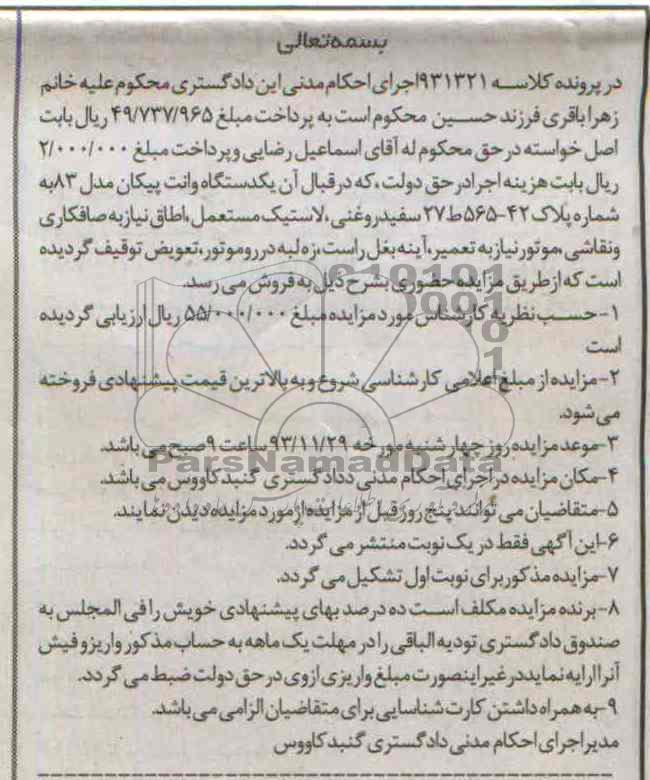 بسمه‌تعالی
در پرونده کلاسه ۹۳۱۳۲۱اجرای احکام مدنی این دادگستری محکوم علیه خانم
زهرا باقری فرزند حسین محکوم است به پرداخت مبلغ ۴۹/۷۳۷/۹۶۵ ریال بابت
اصل خواسته در حق محکوم له آقای اسماعیل رضایی و پرداخت مبلغ ۲/۰۰۰/۰۰۰
ریال بابت هزینه اجرا در حق دولت ، که در قبال آن یکدستگاه وانت پیکان مدل ۸۳به
شماره پلاک ۴۲-۵۶۵ط۲۷ سفیدروغنی ،لاستیک مستعمل ،اطاق نیاز به صافکاری
ونقاشی ،موتور نیاز به تعمیر، آینه بغل راست،زه لبه در رو موتور،تعویض توقیف گردیده
است که از طریق مزایده حضوری بشرح ذیل به فروش می رسد.
۱-حسب نظریه کارشناس مورد مزایده مبلغ ۵۵/۰۰۰/۰۰۰ ریال ارزیابی گردیده
است
۲-مزایده از مبلغ اعلامی کارشناسی شروع و به بالاترین قیمت پیشنهادی فروخته
می شود.
۳-موعد مزایده روز چهارشنبه مورخه ۹۳/۱۱/۲۹ ساعت ۹صبح می باشد.
۴-مکان مزایده در اجرای احکام مدنی ددادگستری گنبد کاووس می باشد.
۵-متقاضیان می توانند پنج روز قبل از مزایده از مورد مزایده دیدن نمایند.
۶-این آگهی فقط در یک نوبت منتشر می گردد.
۷-مزایده مذکور برای نوبت اول تشکیل می گردد.
۸-برنده مزایده مکلف است ده درصد بهای پیشنهادی خویش را فی المجلس به
صندوق دادگستری تودیه الباقی را در مهلت یک ماهه به حساب مذکور واریز و فیش
آنرا ارایه نماید در غیر اینصورت مبلغ واریزی ازوی در حق دولت ضبط می گردد.
۹-به همراه داشتن کارت شناسایی برای متقاضیان الزامی می باشد.
مدیر اجرای احکام مدنی دادگستری گنبد کاووس
ParsNamadData